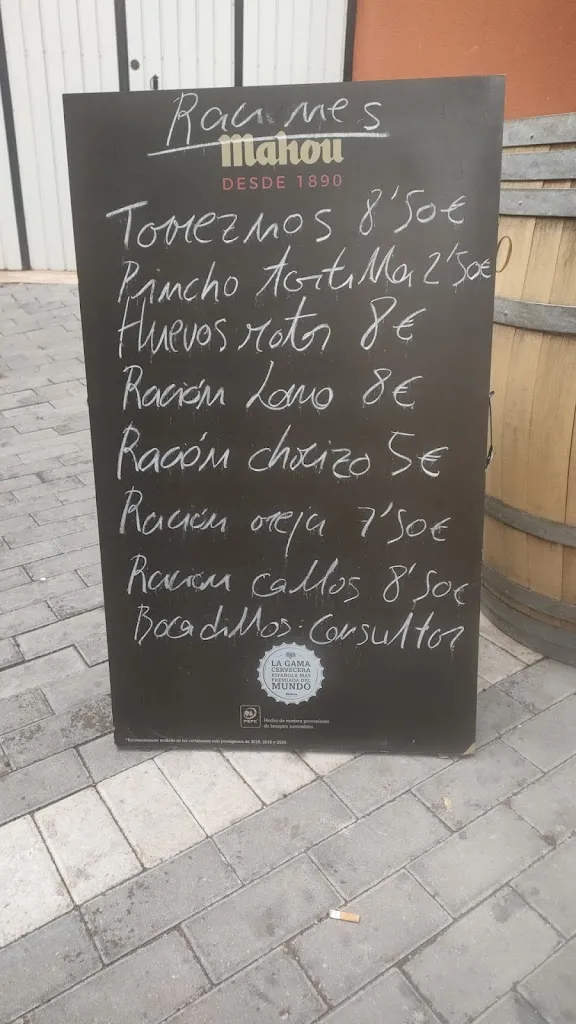 Raciones
Mahou
DESDE 1890
Torreznos 8'50€
Pincho tortilla 2'50€
Huevos rotos 8€
Ración Lomo 8€
Ración chorizo 5€
Ración oreja 7'50€
Ración callos 8'50€
Bocadillos: Consultar
LA GAMA
CERVECERA
ESPAÑOLA MÁS
PREMIADA DEL
MUNDO
Mahou
PEFC
Hecho de madera proveniente
de bosques sostenibles